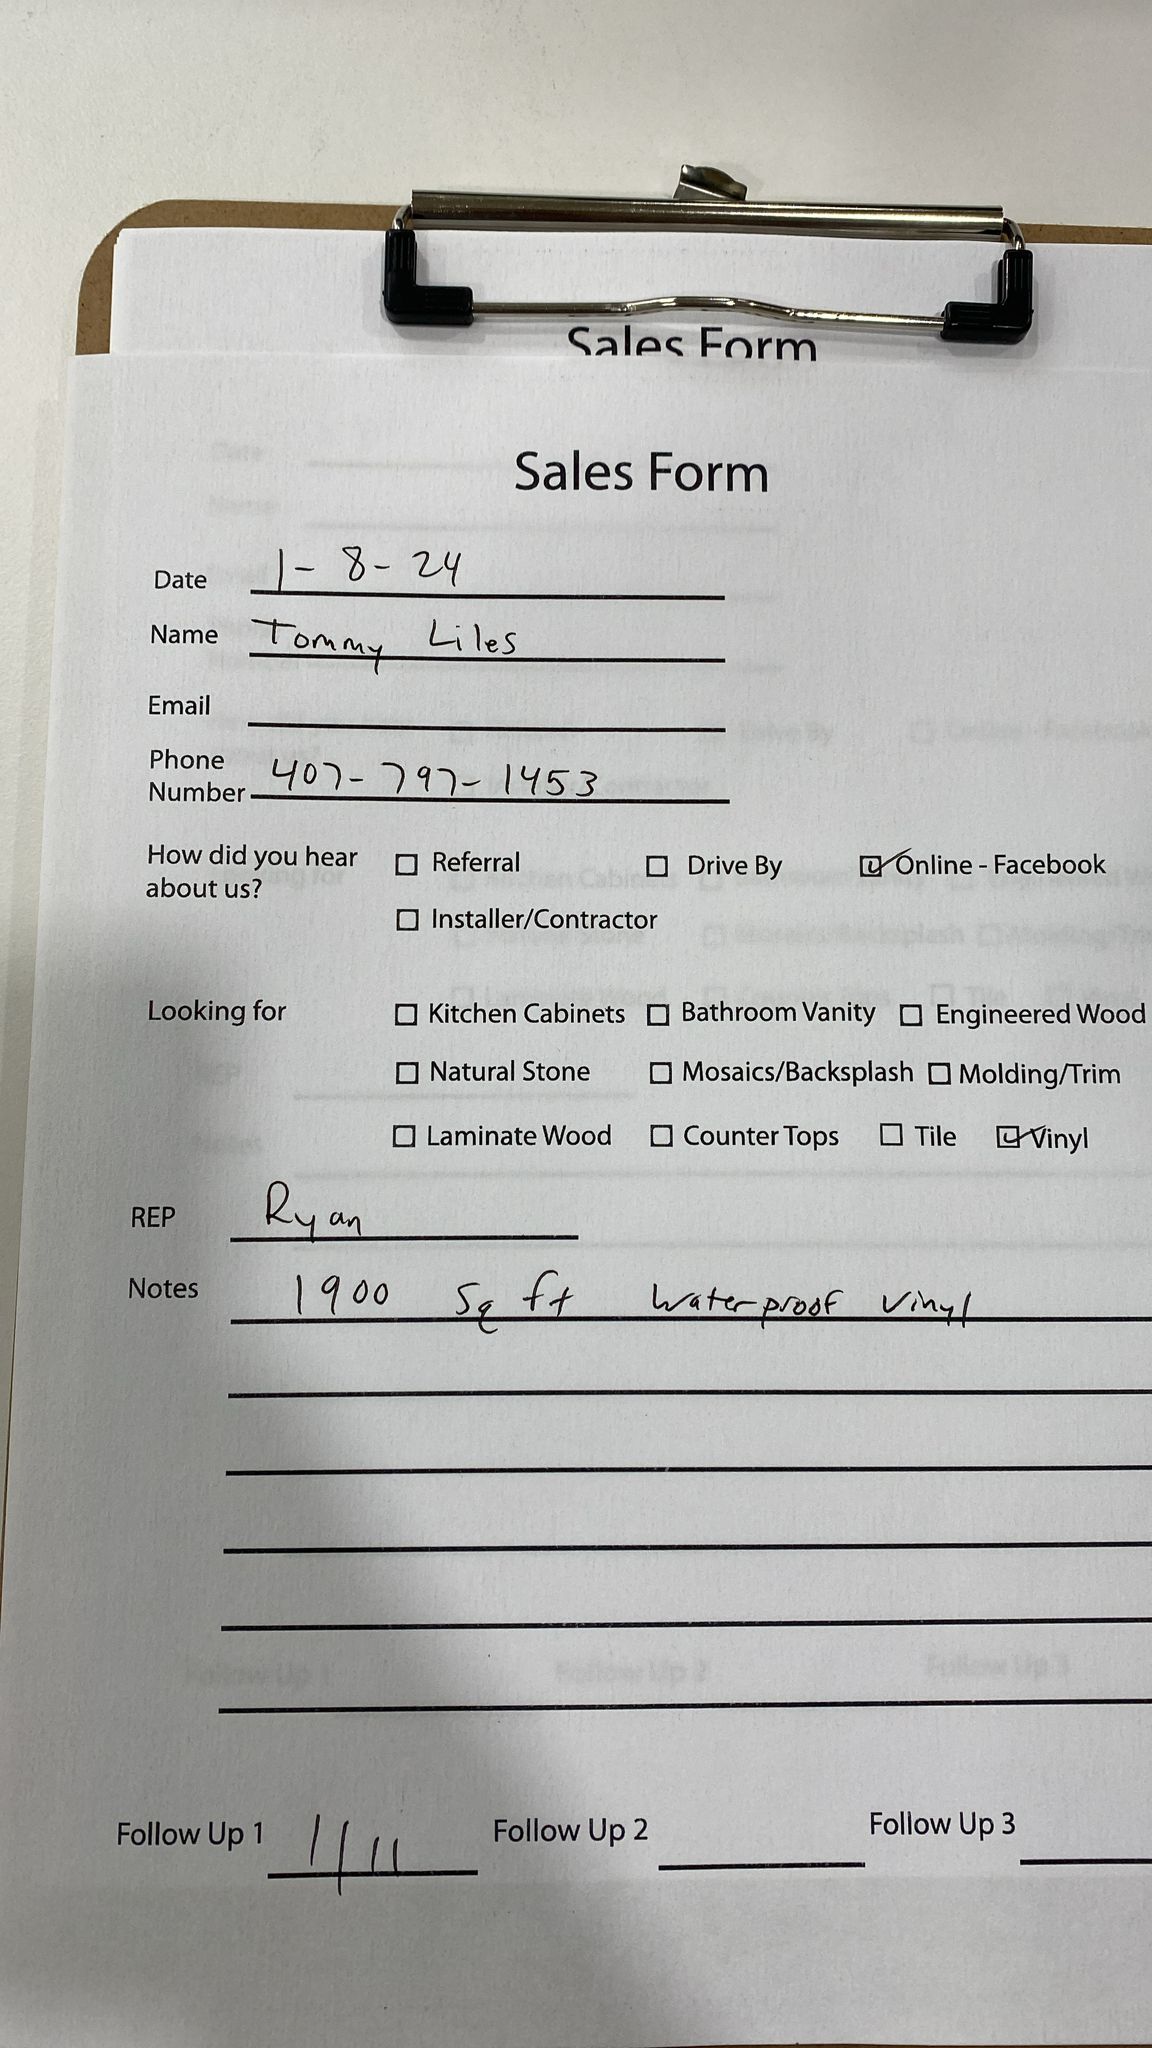 Sales Form
Sales Form
Date 1-8-24
Name Tommy Liles
Email
Phone
Number 407-797-1453
How did you hear ☐ Referral ☐ Drive By ☑ Online - Facebook
about us?
☐ Installer/Contractor
Looking for ☐ Kitchen Cabinets ☐ Bathroom Vanity ☐ Engineered Wood
☐ Natural Stone ☐ Mosaics/Backsplash ☐ Molding/Trim
☐ Laminate Wood ☐ Counter Tops ☐ Tile ☑ Vinyl
REP Ryan
Notes 1900 Sq ft Waterproof Vinyl
Follow Up 1 1/11 Follow Up 2 Follow Up 3